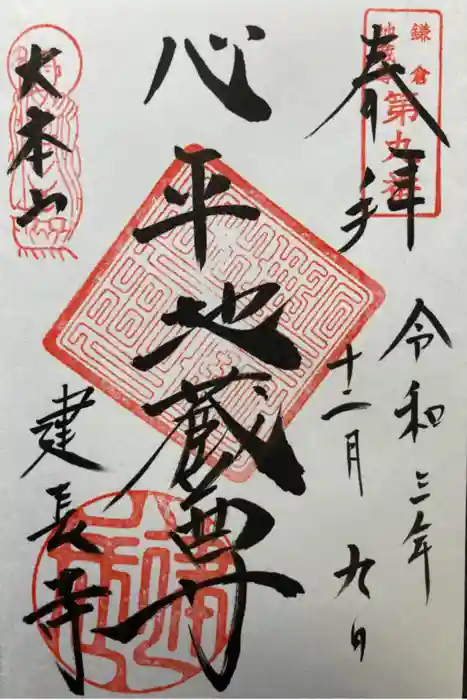 鎌倉
地蔵尊
第九番
奉拝
令和三年
十二月九日
心平地蔵尊
大本山
建長寺